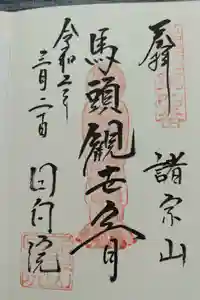 奉拜
諸宗山
馬頭觀世音
令和二年
三月二十日
回向院